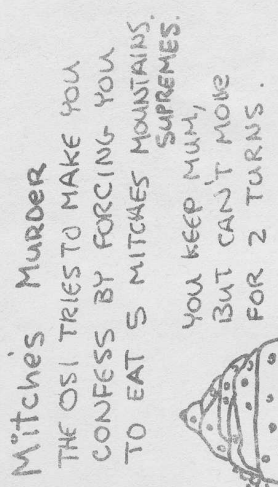 Mitche's MURDER
THE OSI TRIES TO MAKE YOU
CONFESS BY FORCING YOU
TO EAT 5 MITCHES MOUNTAINS.
SUPREMES.
YOU KEEP MUM,
BUT CAN'T MOVE
FOR 2 TURNS.